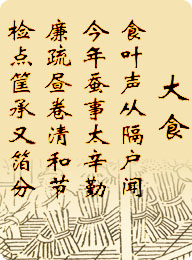 大食
食叶声从隔户闻
今年蚕事太辛勤
廉疏昼卷清和节
检点筐承又箔分